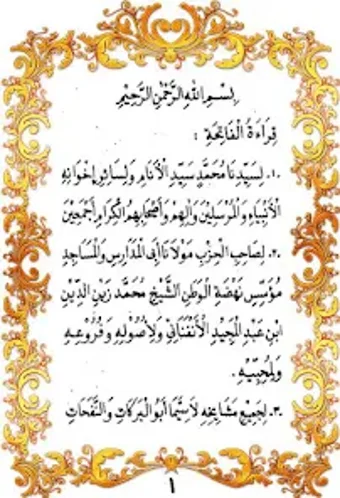 بِسْمِ اللهِ الرَّحْمٰنِ الرَّحِيْمِ
قِرَاءَةُ الْفَاتِحَةِ :
١. لِسَيِّدِنَا مُحَمَّدٍ سَيِّدِ الْأَنَامِ وَلِسَائِرِ إِخْوَانِهِ
الْأَنْبِيَاءِ وَالْمُرْسَلِيْنَ وَآلِهِمْ وَأَصْحَابِهِمُ الْكِرَامِ أَجْمَعِيْنَ
٢. لِصَاحِبِ الْحِزْبِ مَوْلَانَا أَبِى الْمَدَارِسِ وَالْمَسَاجِدِ
مُؤَسِّسِ نَهْضَةِ الْوَطَنِ الشَّيْخِ مُحَمَّد زَيْنِ الدِّيْنِ
ابْنِ عَبْدِ الْمَجِيْدِ الْأَنْفَنَانِي وَلِأُصُوْلِهِ وَفُرُوْعِهِ
وَلِمُحِبِّيْهِ .
٣. لِجَمِيْعِ مَشَايِخِهِ لَاسِيَّمَا أَبُو الْبَرَكَاتِ وَالنَّفَحَاتِ
١